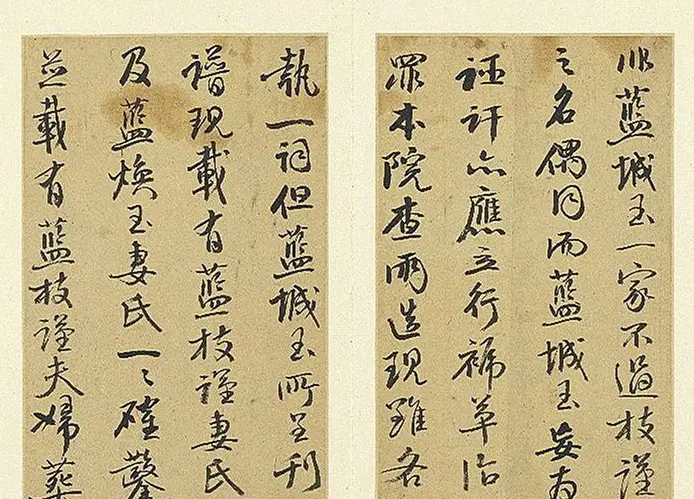 非藍城玉一家不過枝謹
之名偶同而藍城玉妄為
誣訐亦應立行褫革治
罪本院查兩造現雖各
執一詞但藍城玉所呈刊
譜現載有藍枝謹妻氏
及藍煥玉妻氏一一確鑿
並載有藍枝謹夫婦葬